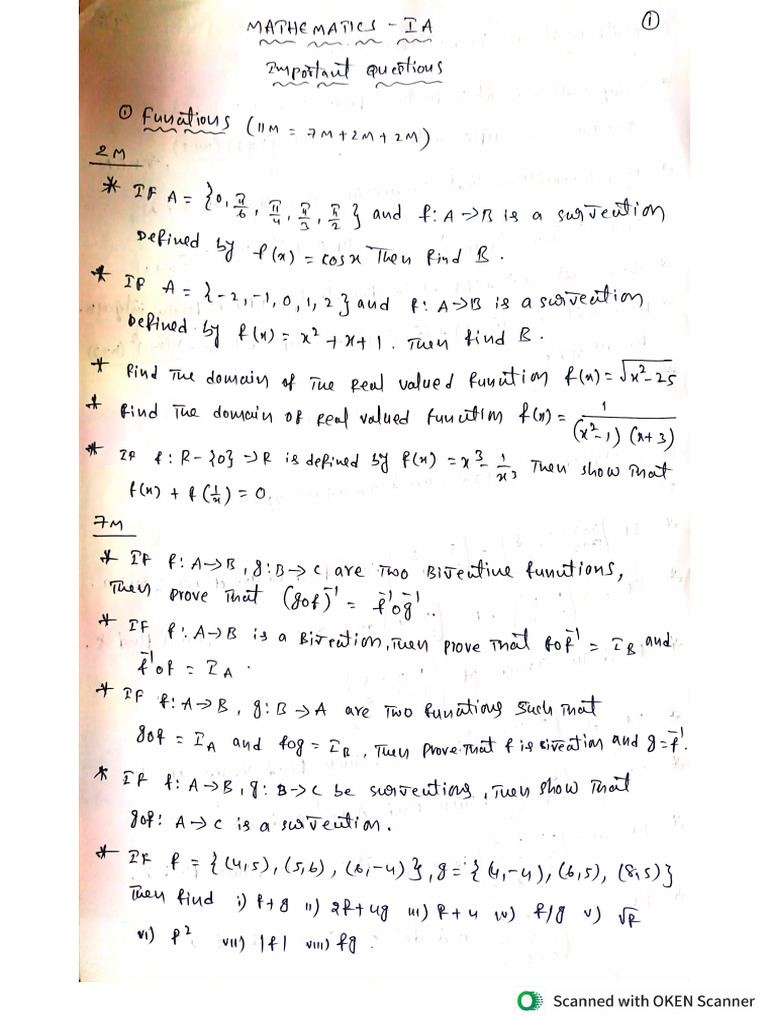 ①
MATHEMATICS - IA
Important Questions
① Functions (11M = 7M + 2M + 2M)
2M
* If A = {0, π/6, π/4, π/3, π/2} and f: A→B is a surjection
Defined by f(x) = cosx Then find B.
* If A = {-2, -1, 0, 1, 2} and f: A→B is a surjection
Defined by f(x) = x² + x + 1. Then find B.
* find The domain of The Real valued function f(x) = √x²-25
* find The domain of Real valued function f(x) = 1/(x²-1)(x+3)
* If f: R-{0} → R is defined by f(x) = x³ - 1/x³, Then show That
f(x) + f(1/x) = 0.
7M
* If f: A→B, g: B→C are Two Bijective functions,
Then prove That (gof)⁻¹ = f⁻¹og⁻¹.
* If f: A→B is a Bijection, Then prove That fof⁻¹ = I_B and
f⁻¹of = I_A.
* If f: A→B, g: B→A are Two functions such That
gof = I_A and fog = I_B, Then prove That f is bijection and g = f⁻¹.
* If f: A→B, g: B→C be surjections, Then show That
gof: A→C is a surjection.
* If f = {(4,5), (5,6), (6,-4)}, g = {(4,-4), (6,5), (8,5)}
Then find i) f+g ii) 2f+4g iii) f+4 iv) f/g v) √f
vi) f² vii) |f| viii) fg.
Scanned with OKEN Scanner